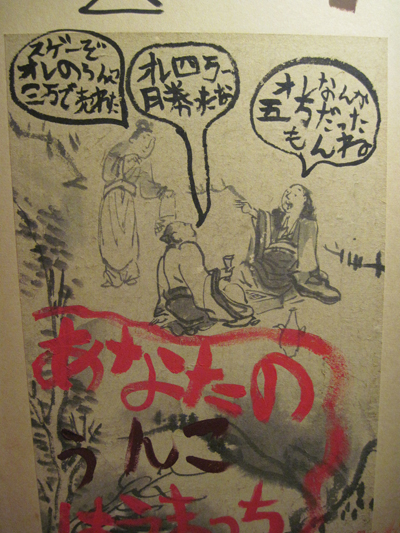 スゲーぞ
オレのうんこ
三万で売れた
オレ四
オレなんか
五万だった
もんね
あなたの
うんこ
はうまっち